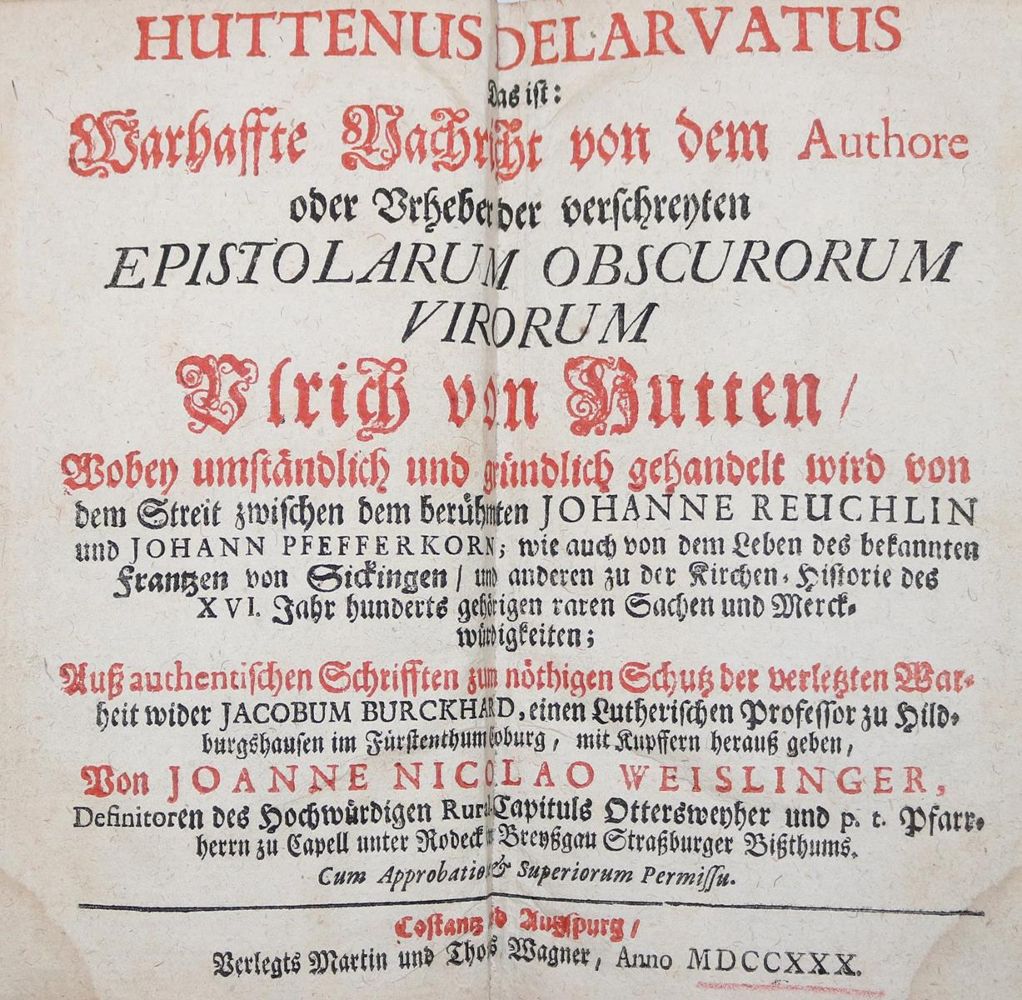 HUTTENUS DELARVATUS
Das ist:
Warhaffte Nachricht von dem Authore
oder Vrheber der verschreyten
EPISTOLARUM OBSCURORUM
VIRORUM
Vlrich von Hutten /
Wobey umständlich und gründlich gehandelt wird von
dem Streit zwischen dem berühmten JOHANNE REUCHLIN
und JOHANN PFEFFERKORN; wie auch von dem Leben des bekannten
Frantzen von Sickingen / und anderen zu der Kirchen-Historie des
XVI. Jahr hunderts gehörigen raren Sachen und Merck-
würdigkeiten;
Auß authentischen Schrifften zum nöthigen Schutz der verletzten War-
heit wider JACOBUM BURCKHARD, einen Lutherischen Professor zu Hild-
burgshausen im Fürstenthum Coburg, mit Kupffern herauß geben,
Von JOANNE NICOLAO WEISLINGER,
Definitoren des Hochwürdigen Rural-Capituls Ottersweyher und p. t. Pfarr-
herrn zu Capell unter Rodeck Breyßgau Straßburger Bißthums.
Cum Approbatio & Superiorum Permissu.
Costantz Augspurg /
Verlegts Martin und Thos Wagner, Anno MDCCXXX.